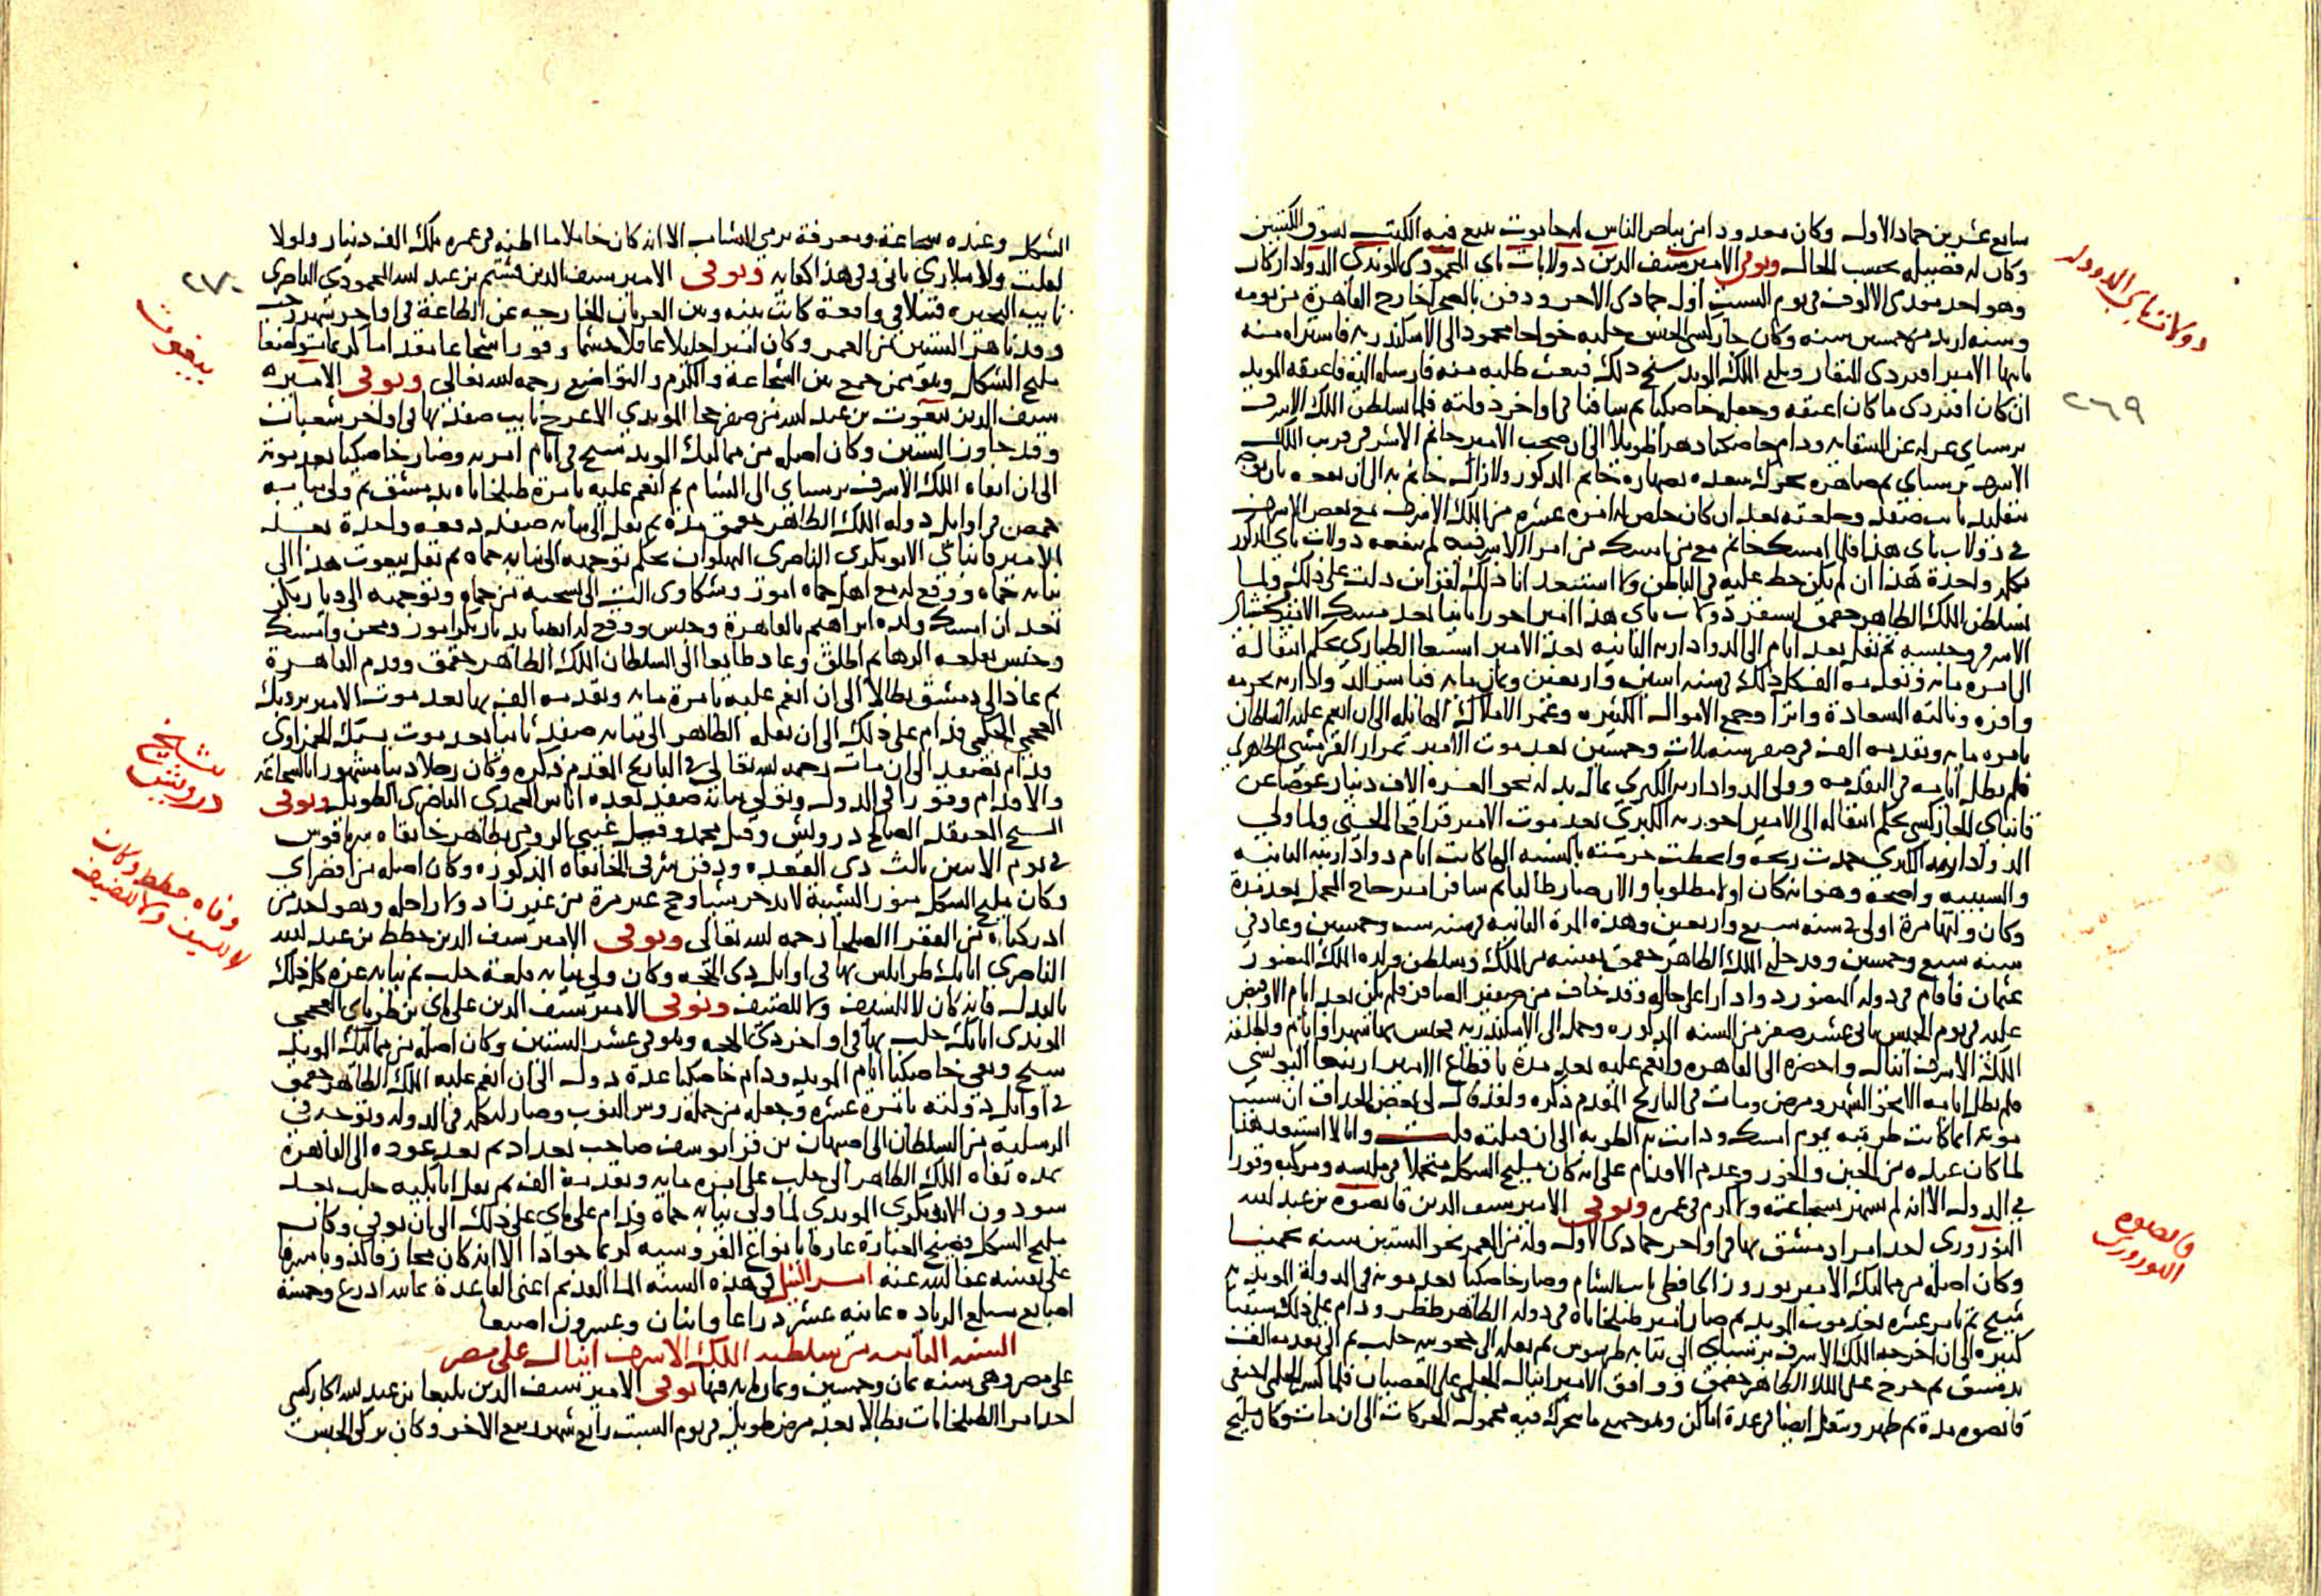 سابع عشرين جماد الاول وكان معدودا من بياض الناس له حانوت يبيع فيه الكتب بسوق الكتبين
وكان له فضيله بحسب الحال وتوفى الامير سيف الدين دولات باى المحمودى المويدى الدوادار كان
وهو احد مقدمى الالوف فى يوم السبت اول جمادى الاخر ودفن بالصحرا خارج القاهرة من يومه
وسنه ازيد من خمسين سنه وكان جاركسى الجنس جلبه خواجا محمود الى الاسكندريه فاشتراه منه
نايبها الامير اقبردى المنقار وبلغ الملك المويد شيخ ذلك فبعث طلبه منه فارسله اليه فاعتقه المويد
ان كان اقبردى ما كان اعتقه وجعله خاصكيا ثم ساقيا فى اواخر دولته فلما تسلطن الملك الاشرف
برسباى عزله عن السقايه ودام خاصكيا دهرا طويلا الى ان صحب الامير جانم الاشرفى قريب الملك
الاشرف برسباى ثم صاهره تحرك سعده بصهارة جانم المذكور ولا زال جانم به الى ان
بتقليد نايب صفد وخلعته بعد ان كان خلص له امره عشره من الملك الاشرف مع بعض الاشرفيه
فى دولات باى هذا فلما امسك جانم مع من امسك من امرا الاشرفيه لم ينفعه دولات باى المذكور
بكلمه واحدة هذا ان لم يكن حط عليه فى الباطن ولا استبعد انا ذلك لقراين دلت على ذلك ولما
تسلطن الملك الظاهر جقمق استقر دولات باى هذا امير اخورا ثانيا بعد مسك الامير يخشباى
الاشرفى وحبسه ثم نقل بعد ايام الى الدواداريه الثانيه بعد الامير اسنبغا الطيارى بحكم انتقاله
الى امره مايه وتقدمه الف كل ذلك فى سنه اثنين واربعين وثمان مايه فباشر الدواداريه بحرمه
وافره ونالته السعادة واثرا وجمع الاموال الكثيره وعمر الاملاك الهايله الى ان انعم عليه السلطان
بامره مايه وتقدمه الف فى صفر سنه ثلاث وخمسين بعد موت الامير تمراز القرمشى الظاهرى
فلم تطل ايامه فى التقدمه وولى الدواداريه الكبرى بمال بذله نحو العشره الاف دينار عوضا عن
قانباى الجاركسى بحكم انتقاله الى الامير اخوريه الكبرى بعد موت الامير قراقجا الحسنى ولما ولى
الدواداريه الكبرى خمدت ريحه وانحطت حرمته بالنسبه الى ما كانت ايام دواداريته الثانيه
والسبب واضحة وهو انه كان اولا مطلوبا والان صار طالبا ثم سافر امير حاج المحمل بعد مدة
وكان وليها مرة اولى فى سنه سبع واربعين وهذه المرة الثانيه فى سنه ست وخمسين وعاد فى
سنه سبع وخمسين وقد خلع الملك الظاهر جقمق نفسه من الملك وسلطن ولده الملك المنصور
عثمان فاقام فى دولة المنصور دوادارا على حاله وقد خاف من صغير الصافر فلم يكن بعد ايام الا وقبض
عليه فى يوم الخميس ثانى عشر صفر من السنه المذكوره وحمل الى الاسكندريه فحبس بها شهرا وايام واطلقه
الملك الاشرف اينال واحضره الى القاهره وانعم عليه بعد مدة باقطاع الامير ارنبغا اليونسى
فلم تطل ايامه الا نحو الشهر ومرض ومات فى التاريخ المقدم ذكره ولقد قال لى بعض الحذاق ان سبب
موته انما كانت طربته يوم امسك ودامت به الطربه الى ان قتلته قلت وانا لا استبعد هذا
لما كان عنده من الجبن والخور وعدم الاقدام على انه كان مليح الشكل متجملا فى ملبسه ومركبه وقورا
فى الدوله الا انه لم يشهر بشجاعة ولا كرم فى عمره وتوفى الامير سيف الدين قانصوه بن عبد الله
النوروزى احد امرا دمشق بها فى اواخر جمادى الاول وله من العمر نحو الستين سنه تخمينا
وكان اصله من مماليك الامير نوروز الحافظى نايب الشام وصار خاصكيا بعد موته فى الدولة المويديه
شيخ ثم تامر عشره بعد موت المويد ثم صار امير طبلخاناه فى دوله الظاهر ططر ودام على ذلك سنينا
كثيره الى ان اخرجه الملك الاشرف برسباى الى نيابه طرسوس ثم نقله الى حجوبيه حلب ثم الى تقدمه الف
بدمشق ثم خرج على الملك الظاهر جقمق ووافق الامير اينال الجكمى على العصيان فلما انكسر الجكمى اختفى
قانصوه مدة ثم ظهر وتنقل ايضا فى عدة اماكن وهو جميع ما يتحرك فيه محمول الحركات الى ان مات وكان مليح
دولات باى الدوادار
٢٦٩
قانصوه
النوروزى
الشكل وعنده شجاعة ومعرفة برمى النشاب الا انه كان خاملا ما اظنه فى عمره ملك الف دينار ولولا
تغلب ولا ملازى يانى فى هذا كفايه وتوفى الامير سيف الدين قشتم بن عبد الله المحمودى الناصرى
نايب البحيره قتيلا فى واقعة كانت بينه وبين العربان الخارجه عن الطاعة فى اواخر شهر رجب
وقد ناهز الستين من العمر وكان اميرا جليلا عاقلا حشما وقورا شجاعا مقداما كريما متواضعا
مليح الشكل وهو ممن جمع بين الشجاعة والكرم والتواضع رحمه الله تعالى وتوفى الامير
سيف الدين بيغوت بن عبد الله من صفر خجا المويدى الاعرج نايب صفد بها فى اواخر شعبان
وقد جاوز الستين وكان اصله من مماليك المويد شيخ فى ايام امريه وصار خاصكيا بعد موته
الى ان نفاه الملك الاشرف برسباى الى الشام ثم انعم عليه بامرة طبلخاناه بدمشق ثم ولى نيابه
حمص فى اوايل دوله الملك الظاهر جقمق مدة ثم نقل الى نيابه صفد دفعه واحدة بعد
الامير قانباى الابوبكرى الناصرى البهلوان بحكم توجهه الى نيابه حماه ثم نقل بيغوت هذا الى
نيابه حماه ووقع له مع اهل حماه امور وشكاوى الت الى تسحبه من حماه وتوجهه الى ديار بكر
بعد ان امسك ولده ابراهيم بالقاهرة وحبس ووقع له ايضا بديار بكر امور ومحن وامسك
وحبس بقلعه الرها ثم اطلق وعاد طايعا الى السلطان الملك الظاهر جقمق وقدم القاهرة
ثم عاد الى دمشق بطالا الى ان انعم عليه بامرة مايه وتقدمه الف بها بعد موت الامير بردبك
العجمى الجكمى فدام على ذلك الى ان نقله الظاهر الى نيابه صفد ثانيا بعد موت يشبك الحمزاوى
فدام بصفد الى ان مات رحمه الله تعالى فى التاريخ المقدم ذكره وكان رجلا دينا مشهورا بالشجاعه
والاقدام وقورا فى الدول وتولى نيابه صفد بعده اياس المحمدى الناصرى الطويل وتوفى
الشيخ المعتقد الصالح درويش وقيل محمد وقيل غيبى الرومى بظاهر خانقاه سرياقوس
فى يوم الاثنين ثالث ذى القعده ودفن شرقى الخانقاه المذكوره وكان اصله من اقصراى
وكان مليح الشكل منور الشيبة لا يدخر شيا وحج غير مرة من غير زاد ولا راحله وهو احد من
ادركناه من الفقرا الصلحا رحمه الله تعالى وتوفى الامير سيف الدين خطط بن عبد الله
الناصرى اتابك طرابلس بها فى اوايل ذى الحجه وكان ولى نيابه قلعة حلب ثم نيابه غزه كل ذلك
بالبدل فانه كان لا للسيف ولا للضيف وتوفى الامير سيف الدين على باى بن طرباى العجمى
المويدى اتابك حلب بها فى اواخر ذى الحجه وهو فى عشر الستين وكان اصله من مماليك المويد
شيخ وبقى خاصكيا ايام المويد ودام خاصكيا عدة دول الى ان انعم عليه الملك الظاهر جقمق
فى اوايل دولته بامرة عشره وجعله من جملة روس النوب وصار له كلمه فى الدوله وتوجه فى
الرسليه من السلطان الى اصبهان بن قرا يوسف صاحب بغداد ثم بعد عوده الى القاهرة
بمده نفاه الملك الظاهر الى حلب على امره مايه وتقدمة الف ثم نقل الى اتابكيه حلب بعد
سودون الابوبكرى المويدى لما ولى نيابه حماة فدام على باى على ذلك الى ان توفى وكان
مليح الشكل فصيح العبارة عارفا بانواع الفروسيه كريما جوادا الا انه كان مجازفا كذوبا مسرفا
على نفسه عفا الله عنه امر النيل فى هذه السنه الما القديم اعنى القاعدة ثمانيه اذرع وخمسة
اصابع مبلغ الزياده ثمانيه عشر ذراعا واثنان وعشرون اصبعا
السنه الثانيه من سلطنه الملك الاشرف اينال على مصر
على مصر وهى سنه ثمان وخمسين وثمان مايه فيها توفى الامير سيف الدين يلبغا بن عبد الله الجاركسى
احد امرا الطبلخانات بطالا بعد مرض طويل فى يوم السبت رابع شهر ربيع الاخر وكان تركى الجنس
٢٧٠
بيغوت
شيخ
درويش
وفاه خطط وكان
لا للسيف ولا للضيف